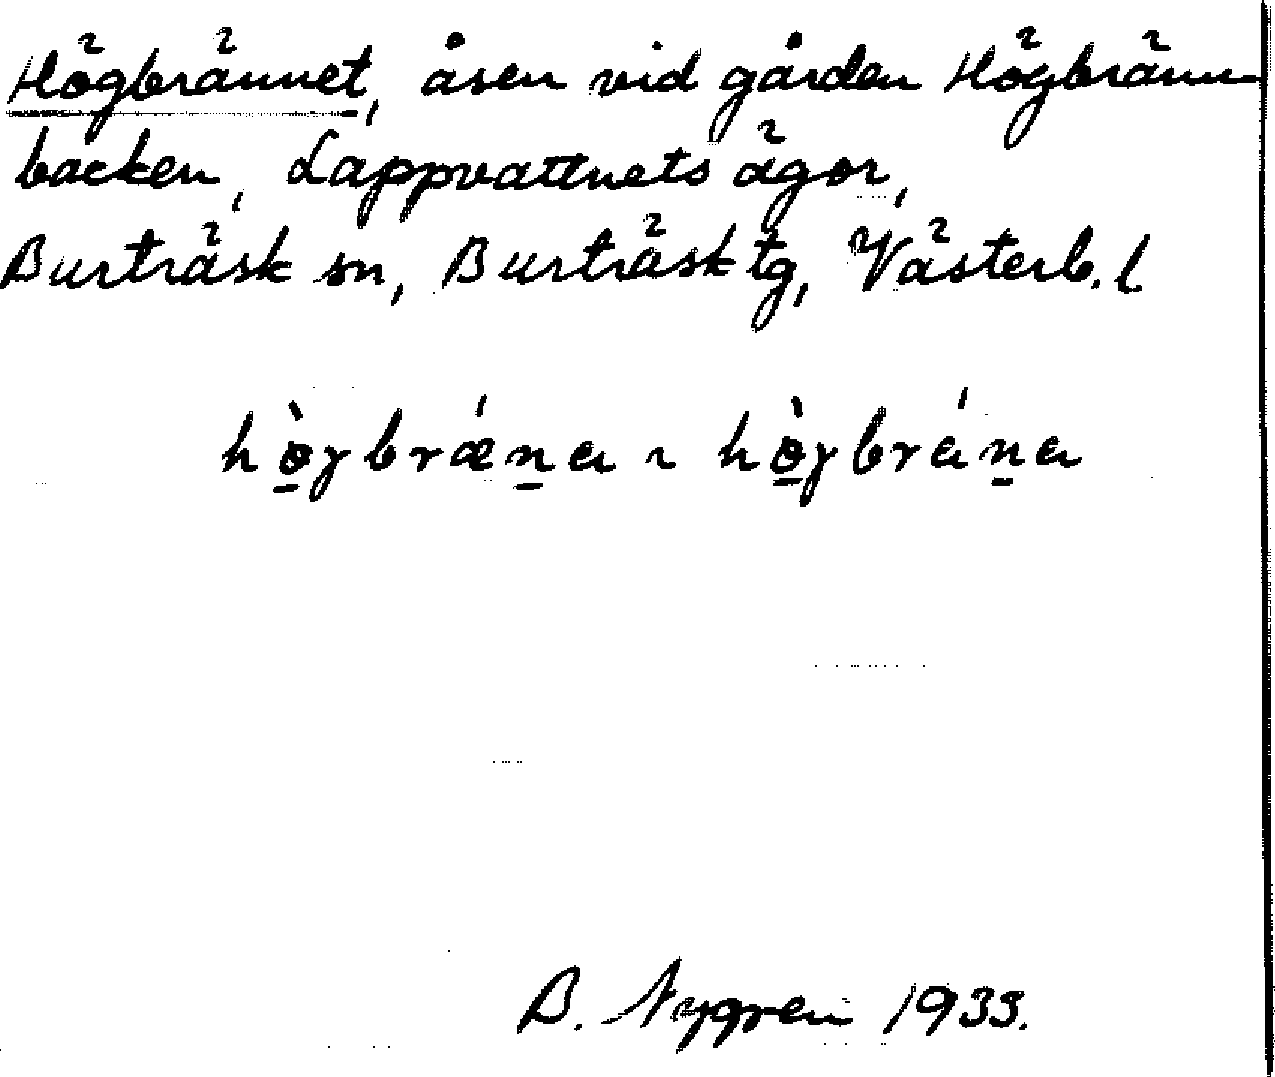 Högbrännet, åsen vid gården Högbränn-
backen, Lappvattnets ägor,
Burträsk sn, Burträsk tg, Västerb. l
hò̠gbrǽn̠a ~ hò̠gbrán̠a
B. Nygren 1933.